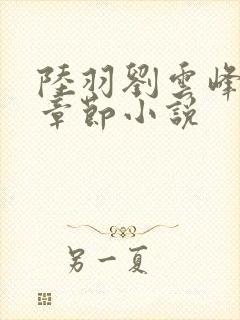 陸羽劉雲峰
章節小説
另一夏